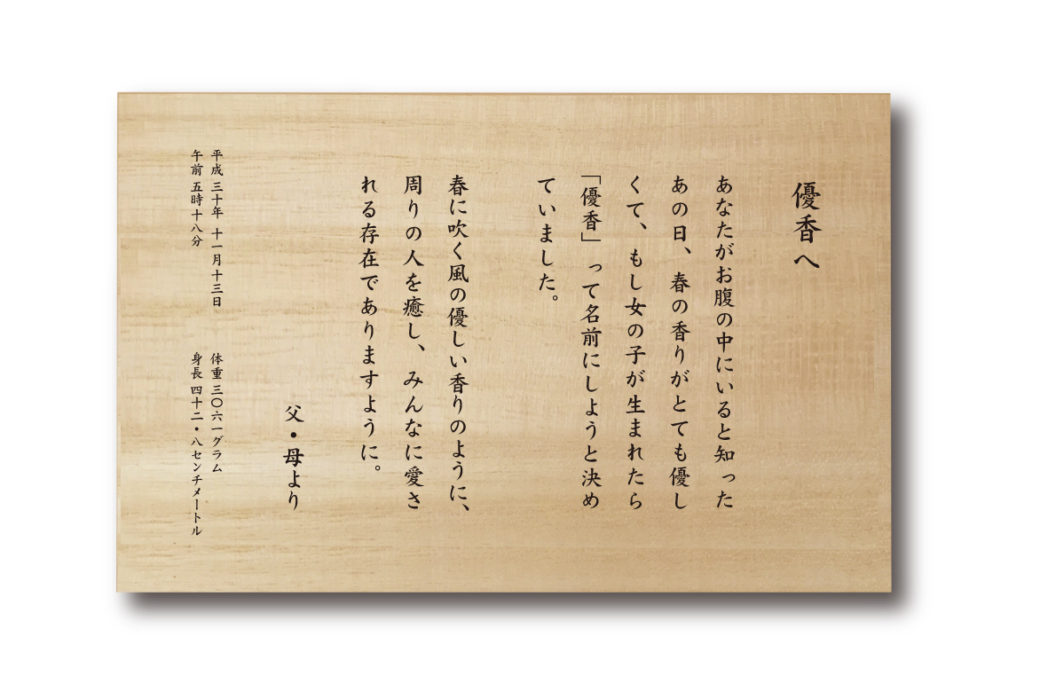 優香へ
あなたがお腹の中にいると知った
あの日、春の香りがとても優し
くて、もし女の子が生まれたら
「優香」って名前にしようと決め
ていました。
春に吹く風の優しい香りのように、
周りの人を癒し、みんなに愛さ
れる存在でありますように。
父・母より
平成三十年 十一月十三日
午前五時十八分
体重三〇六一グラム
身長四十二・八センチメートル